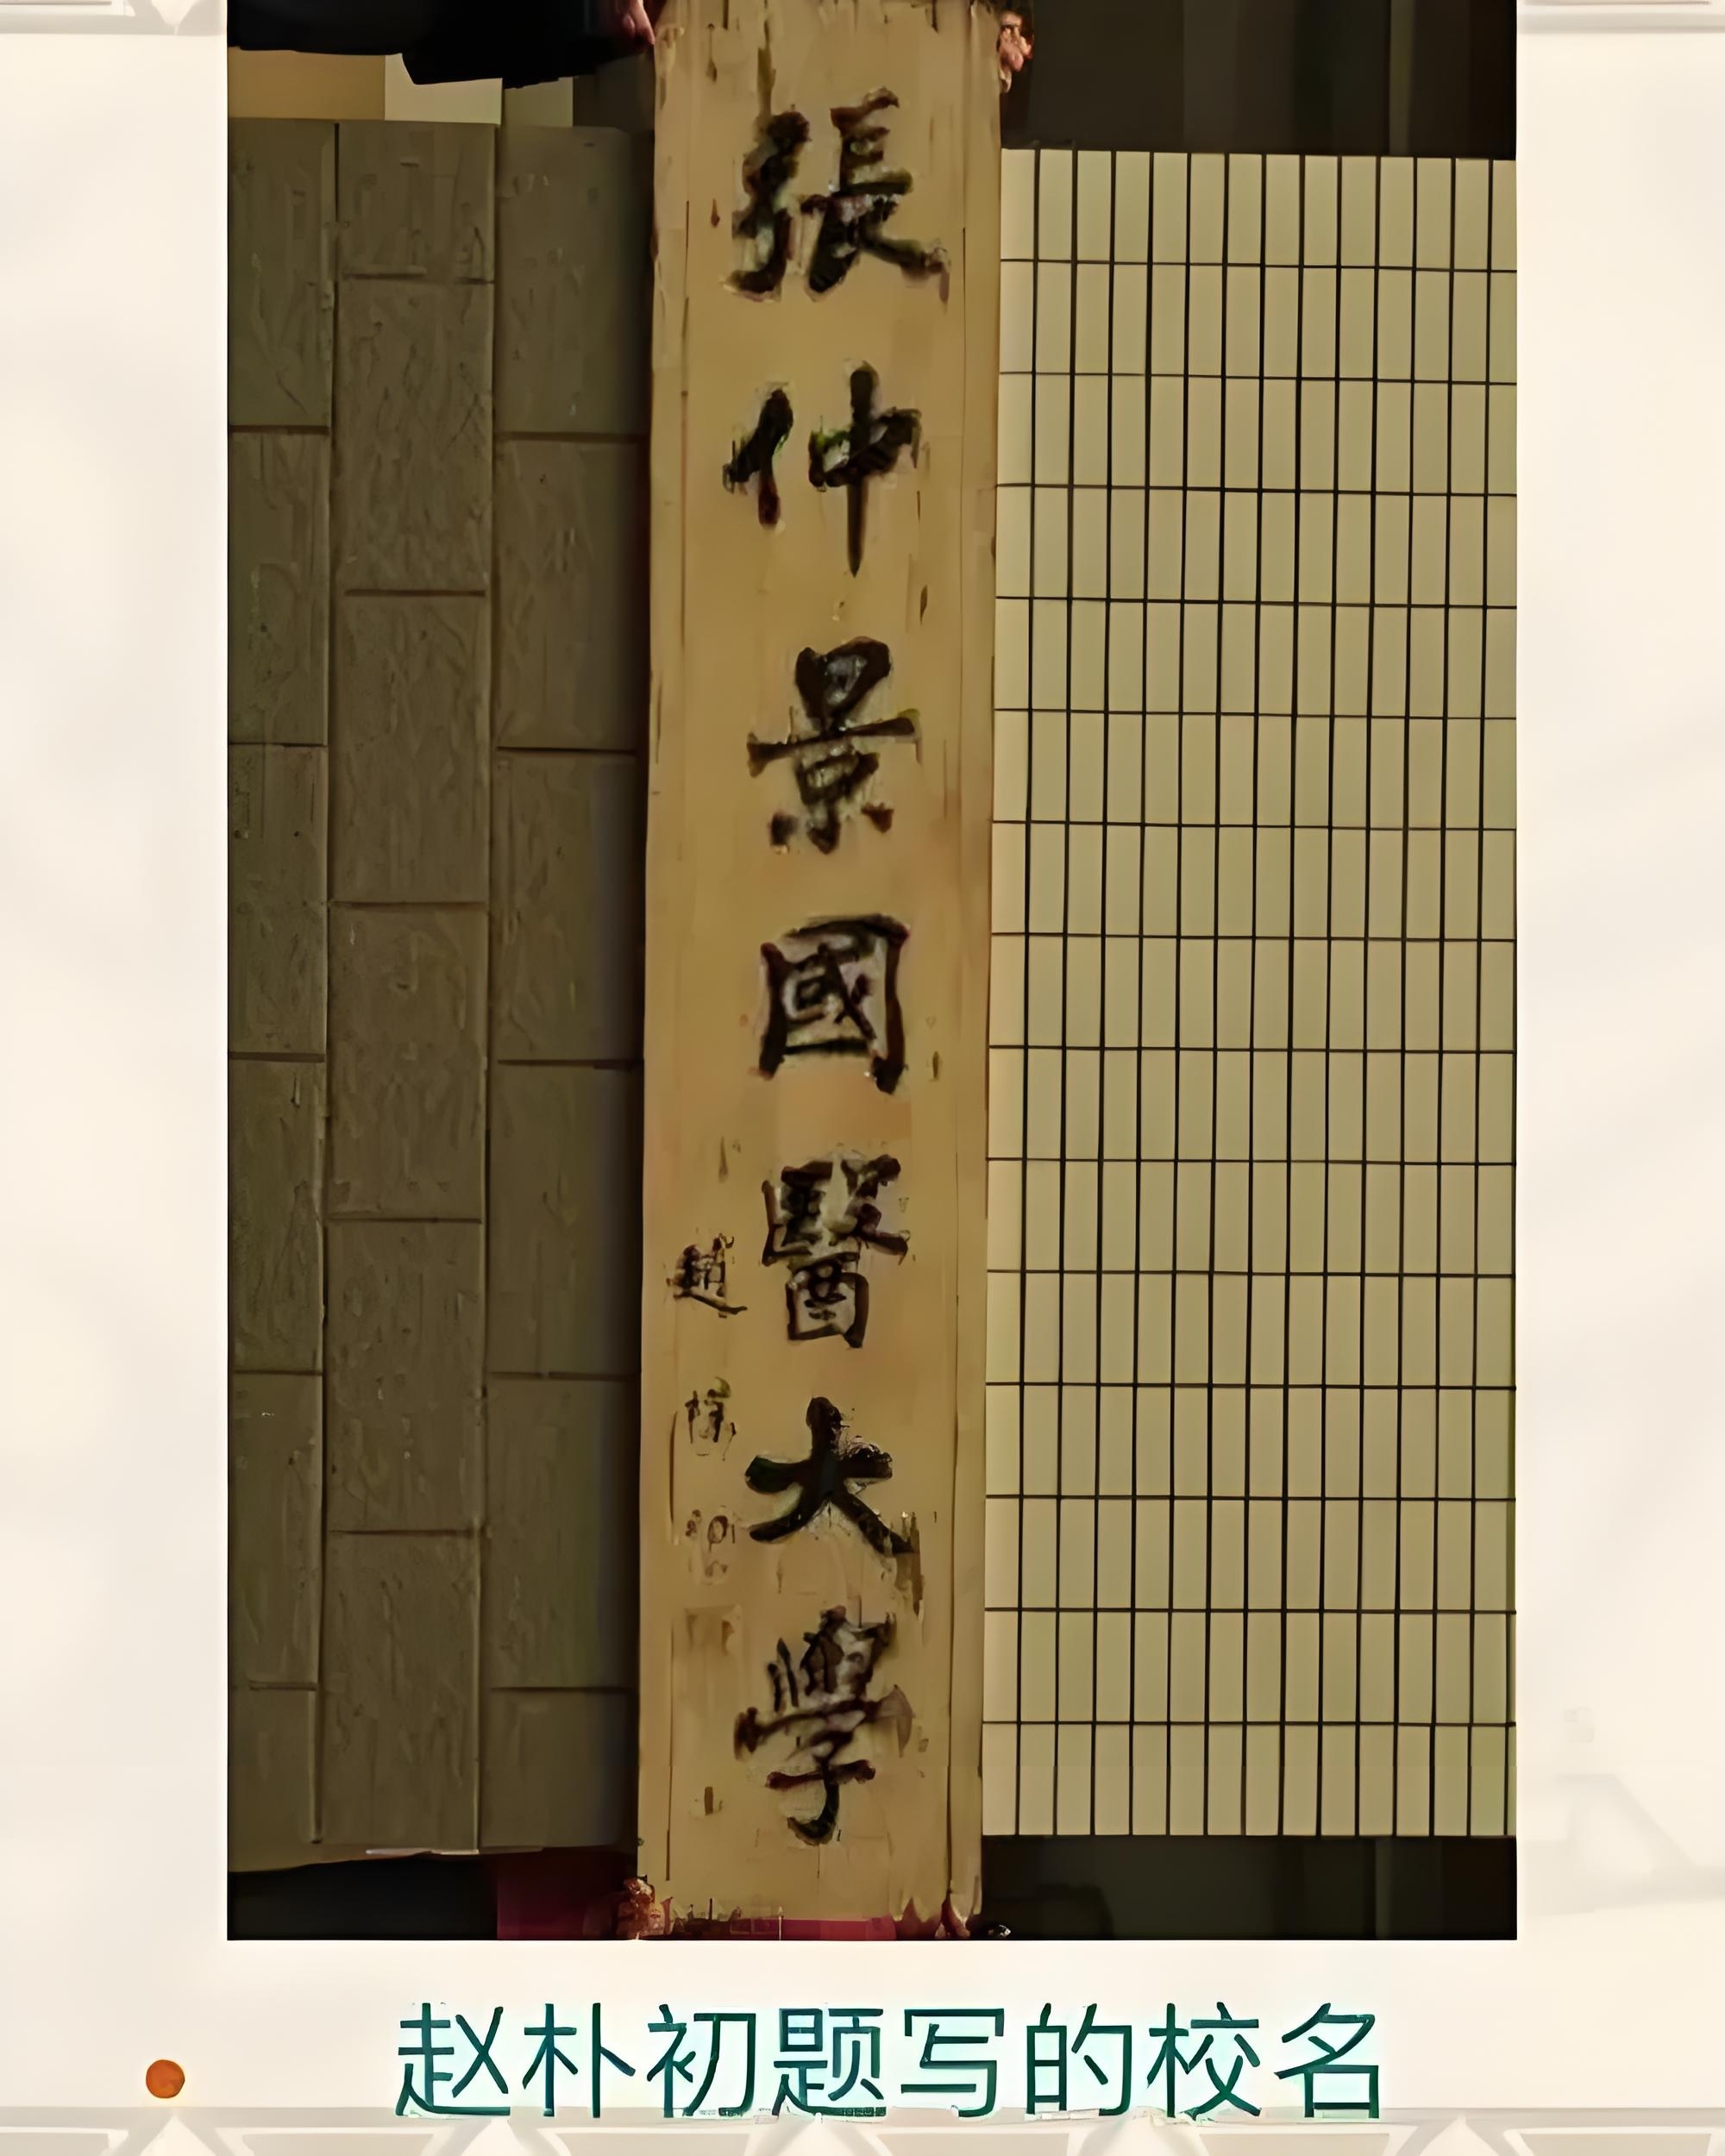 張仲景國醫大學
趙樸初
赵朴初题写的校名